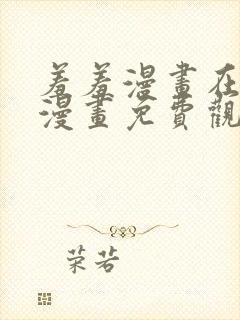 羞羞漫畫在
漫畫免費觀
荣若